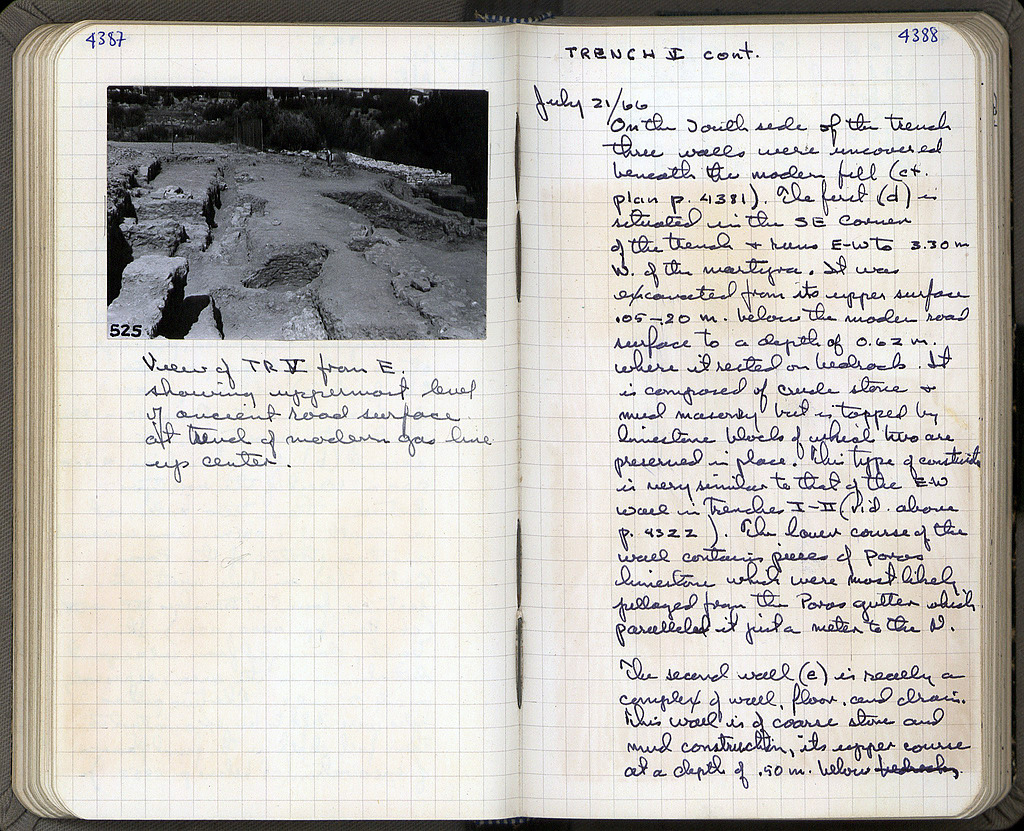 4387
525
View of TR V from E.
showing uppermost level
of ancient road surface.
at trench of modern gas line
up center.
4388
TRENCH V cont.
July 21/66
On the South side of the trench
three walls were uncovered
beneath the modern fill (cf.
plan p. 4381). The first (d) is
situated in the SE corner
of the trench + runs E-W to 3.30 m
W. of the martyra. It was
excavated from its upper surface
.05-.20 m. below the modern road
surface to a depth of 0.62 m.
where it rested on bedrock. It
is composed of crude stone +
mud masonry but is topped by
limestone blocks of which two are
preserved in place. This type of
is very similar to that of the E-W
wall in Trenches I-II (vid. above
p. 4322 ). The lower course of the
wall contains pieces of Poros
limestone which were most likely
pillaged from the Poros gutter which
paralleled it just a meter to the N.
The second wall (e) is really a
complex of wall, floor, and drain.
This wall is of coarse stone and
mud construction, its upper course
at a depth of .50 m. below bedrock,